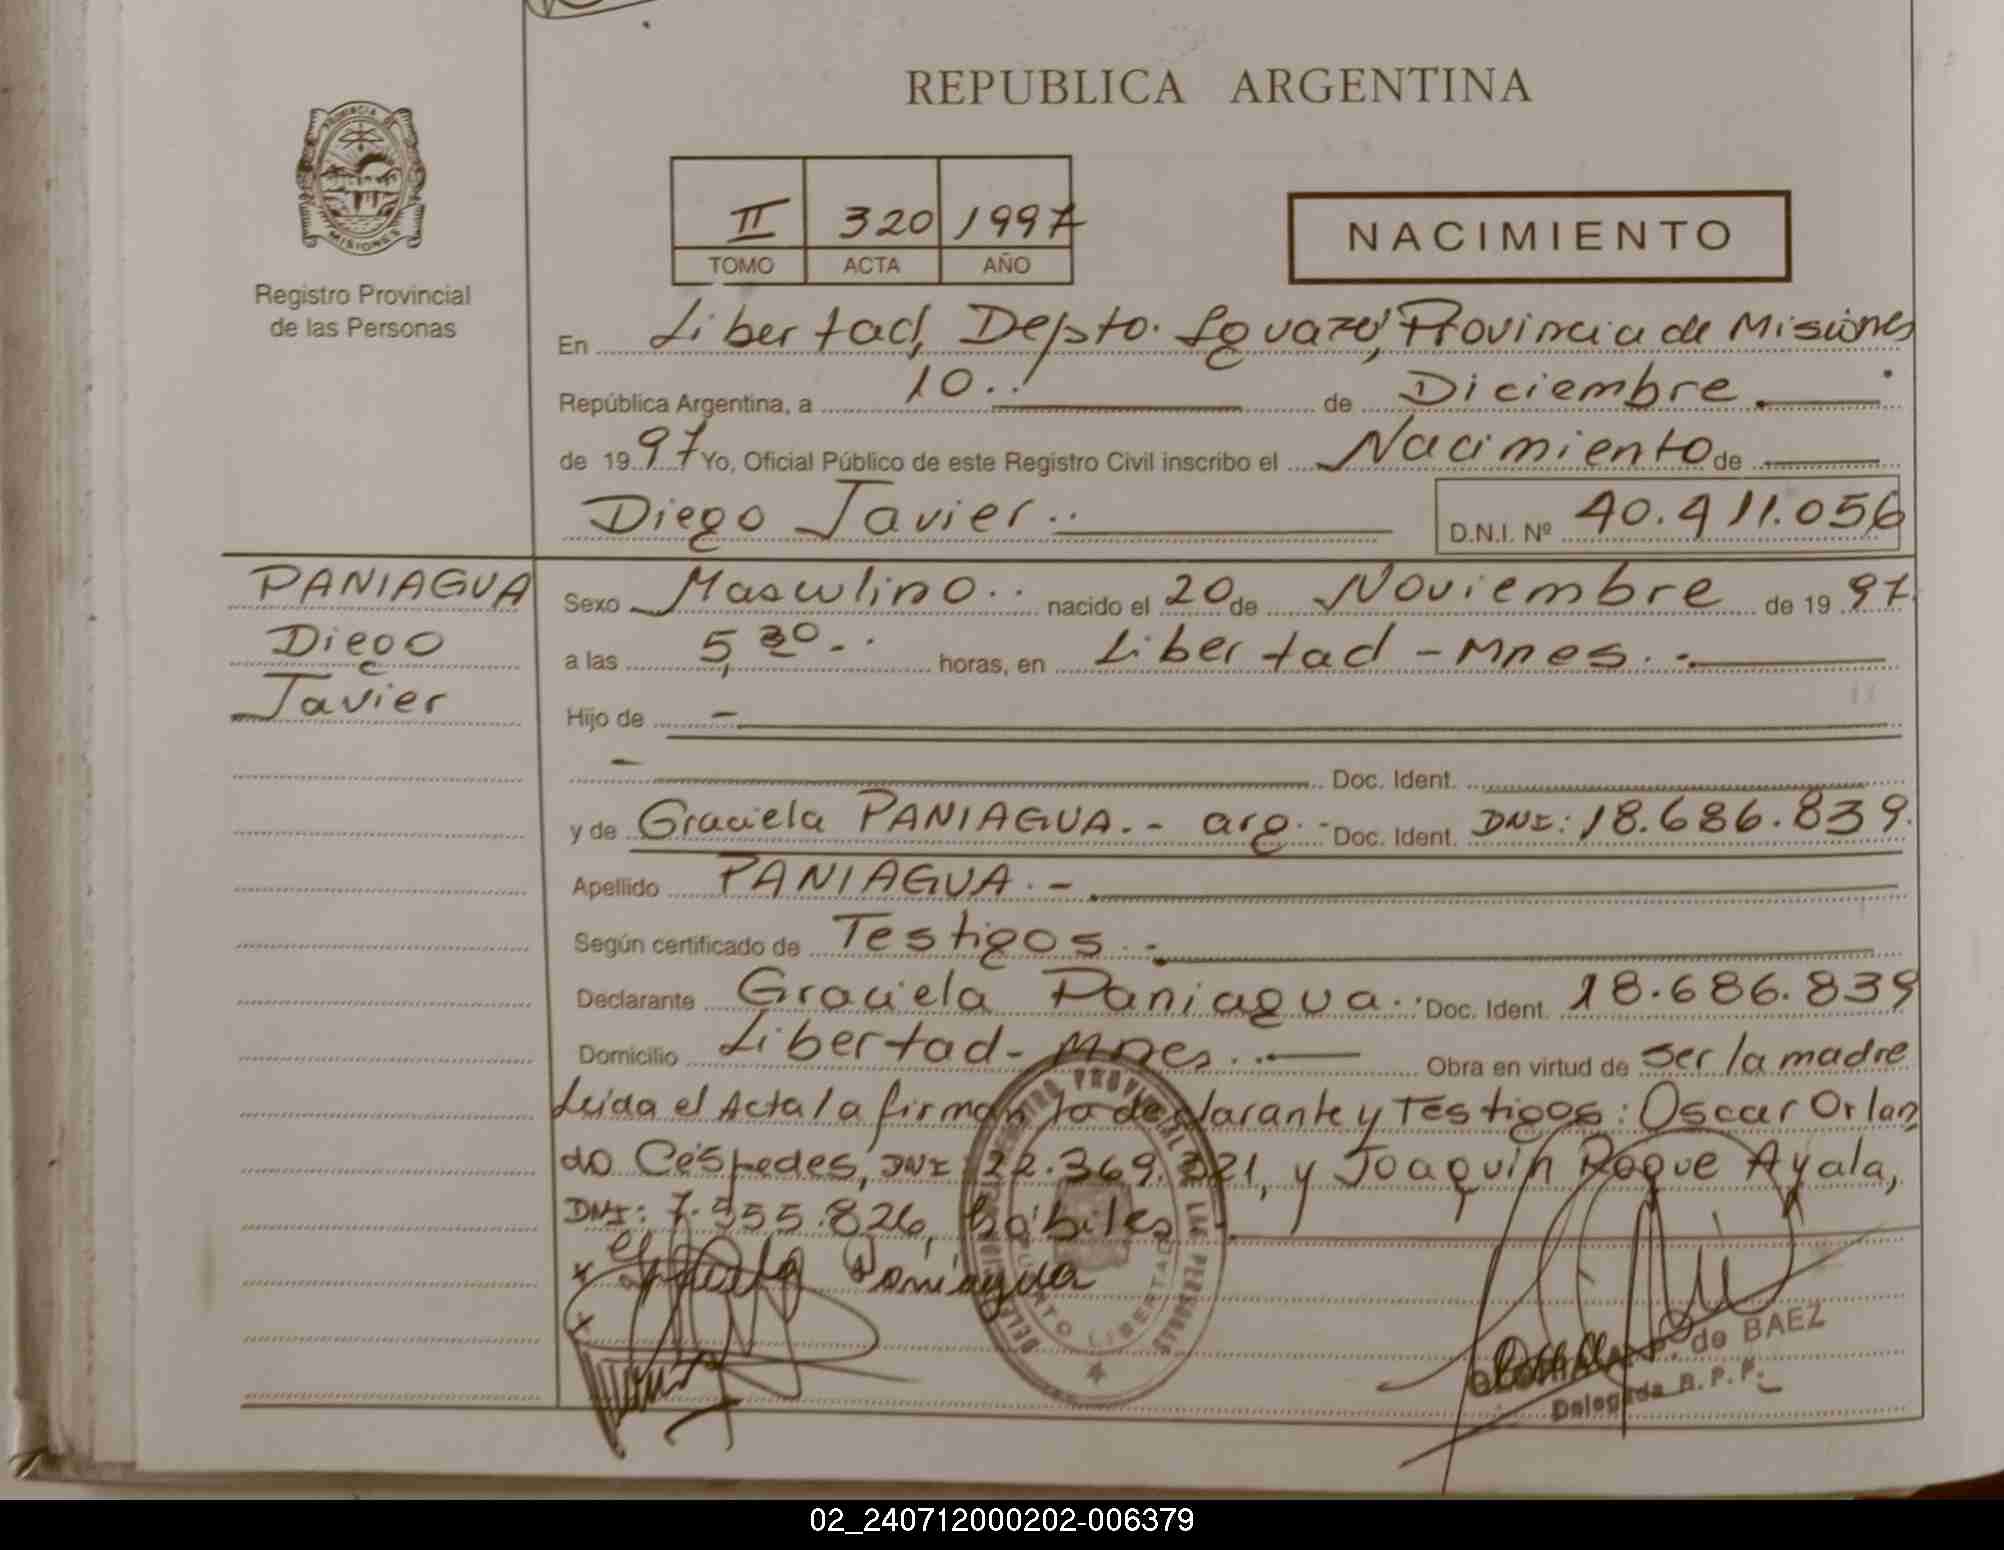 REPUBLICA ARGENTINA
PROVINCIA DE
MISIONES
Registro Provincial
de las Personas
II 320 1997
TOMO ACTA AÑO
NACIMIENTO
En Libertad, Depto. Iguazú, Provincia de Misiones
República Argentina, a 10.. de Diciembre.
de 1997 Yo, Oficial Público de este Registro Civil inscribo el Nacimiento de
Diego Javier.. D.N.I. Nº 40.411.056
PANIAGUA
Diego
Javier
Sexo Masculino.. nacido el 20 de Noviembre de 1997.
a las 5,30-. horas, en Libertad - Mnes. -
Hijo de -
- Doc. Ident.
y de Graciela PANIAGUA.- arg.- Doc. Ident. DNI: 18.686.839.
Apellido PANIAGUA.-
Según certificado de Testigos.-
Declarante Graciela Paniagua.. Doc. Ident. 18.686.839
Domicilio Libertad - Mnes.. Obra en virtud de ser la madre
Leida el Acta la firman la declarante y Testigos: Oscar Orlan
do Céspedes, DNI: 22.369.321, y Joaquín Roque Ayala,
DNI: 7.555.826, hábiles
x Paniagua
x
REGISTRO PROVINCIAL DE LAS PERSONAS
LIBERTAD
P. de BAEZ
Delegada R.P.P.
02_240712000202-006379